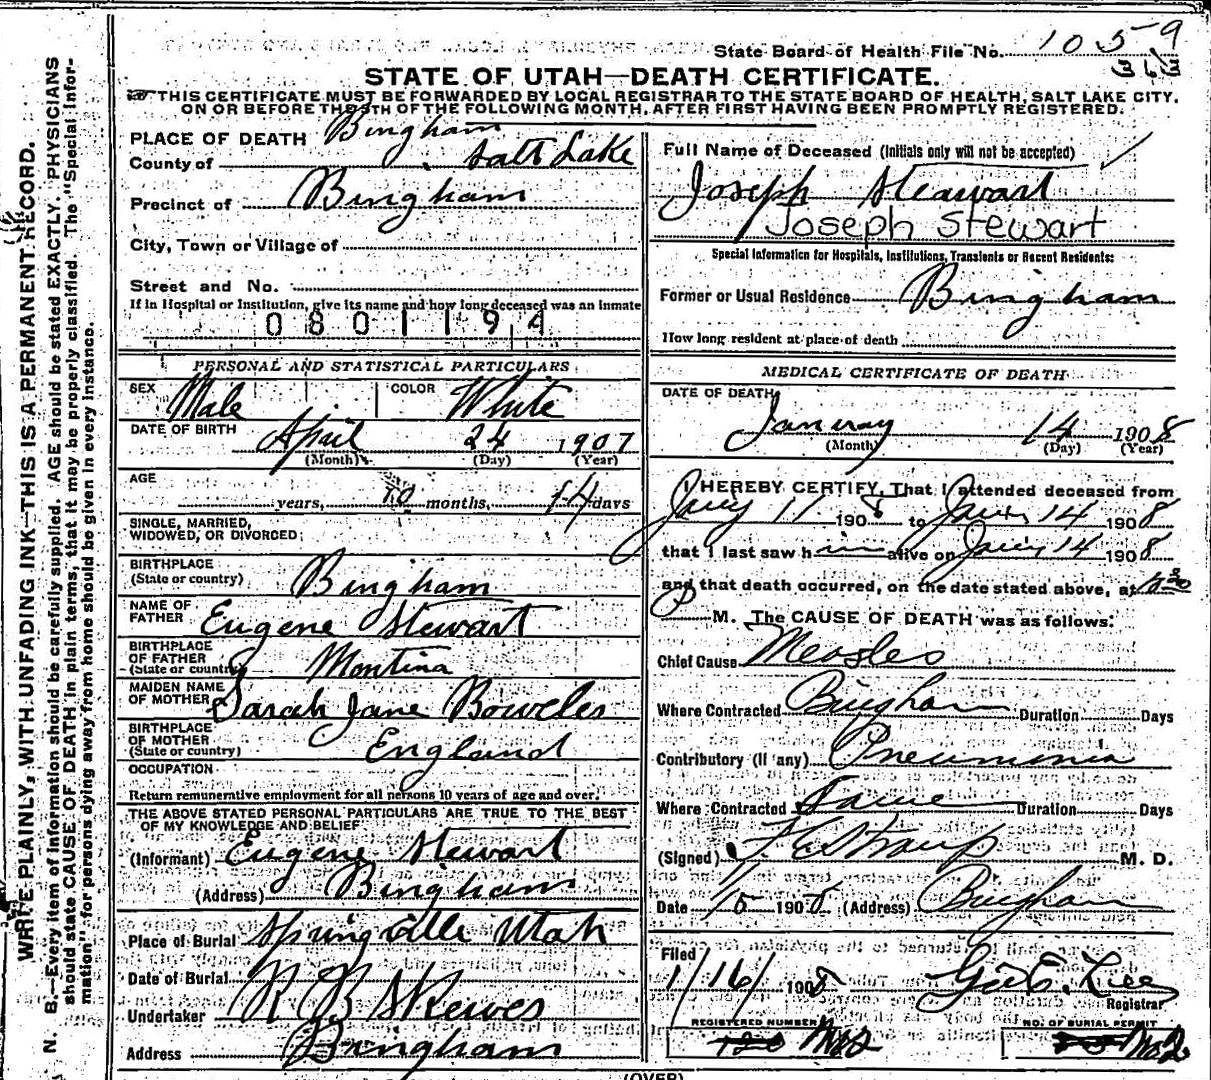 State Board of Health File No. 1059
STATE OF UTAH—DEATH CERTIFICATE.
THIS CERTIFICATE MUST BE FORWARDED BY LOCAL REGISTRAR TO THE STATE BOARD OF HEALTH, SALT LAKE CITY,
ON OR BEFORE THE 5TH OF THE FOLLOWING MONTH, AFTER FIRST HAVING BEEN PROMPTLY REGISTERED.
WRITE PLAINLY, WITH UNFADING INK—THIS IS A PERMANENT RECORD.
N. B.—Every item of Information should be carefully supplied. AGE should be stated EXACTLY. PHYSICIANS
should state CAUSE OF DEATH in plain terms, that it may be properly classified. The "Special Infor-
mation" for persons dying away from home should be given in every instance.
PLACE OF DEATH Bingham
County of Salt Lake
Precinct of Bingham
City, Town or Village of
Street and No.
If in Hospital or Institution, give its name and how long deceased was an inmate
0801194
PERSONAL AND STATISTICAL PARTICULARS
SEX Male COLOR White
DATE OF BIRTH April 24 1907
(Month) (Day) (Year)
AGE
years, months, 14 days
SINGLE, MARRIED,
WIDOWED, OR DIVORCED
BIRTHPLACE
(State or country) Bingham
NAME OF
FATHER Eugene Stewart
BIRTHPLACE
OF FATHER
(State or country) Montina
MAIDEN NAME
OF MOTHER Sarah Jane Bowcles
BIRTHPLACE
OF MOTHER
(State or country) England
OCCUPATION
Return remunerative employment for all persons 10 years of age and over.
THE ABOVE STATED PERSONAL PARTICULARS ARE TRUE TO THE BEST
OF MY KNOWLEDGE AND BELIEF
(Informant) Eugene Stewart
(Address) Bingham
Place of Burial Springville Utah
Date of Burial
Undertaker R B Skewes
Address Bingham
Full Name of Deceased (Initials only will not be accepted)
Joseph Steawart
Joseph Stewart
Special Information for Hospitals, Institutions, Transients or Recent Residents:
Former or Usual Residence Bingham
How long resident at place of death
MEDICAL CERTIFICATE OF DEATH
DATE OF DEATH
Januray 14 1908
(Month) (Day) (Year)
I HEREBY CERTIFY, That I attended deceased from
Jany 11 1908 to Jany 14 1908
that I last saw him alive on Jany 14 1908
and that death occurred, on the date stated above, at
P M. The CAUSE OF DEATH was as follows:
Chief Cause Measles
Where Contracted Bingham Duration Days
Contributory (If any) Pneumonia
Where Contracted Same Duration Days
(Signed) F E Straup M. D.
Date 1/15 1908 (Address) Bingham
Filed
1/16/ 1908 Geo C. Lee
Registrar
REGISTERED NUMBER No 2
NO. OF BURIAL PERMIT No 2
(OVER)